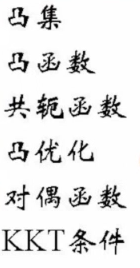 凸集
凸函数
共轭函数
凸优化
对偶函数
KKT条件